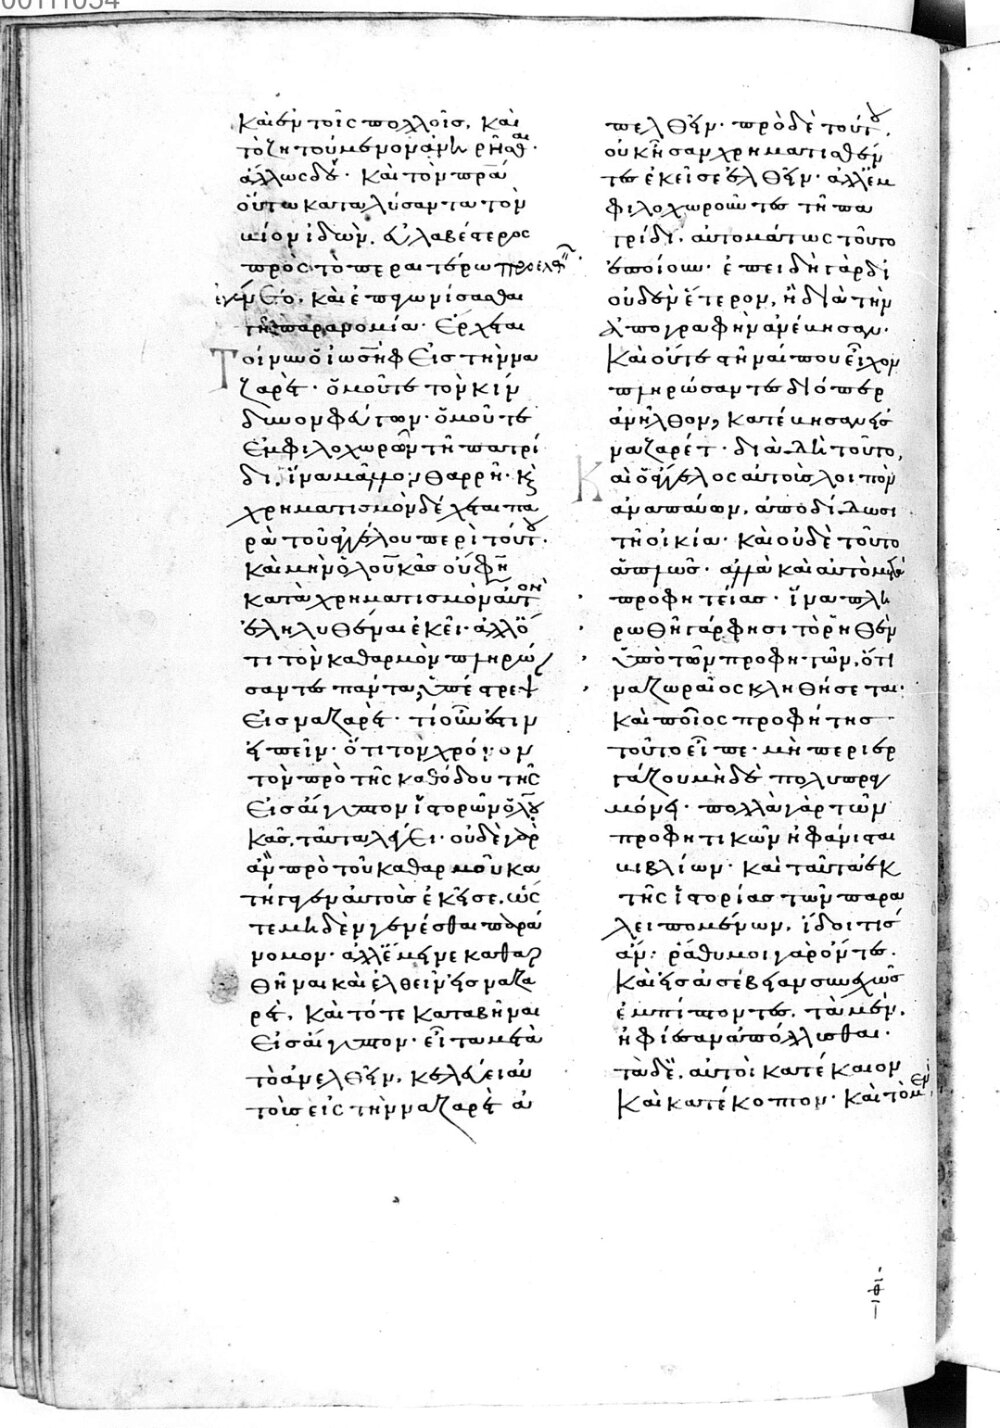 00111034
καὶ ἐν τοῖς πολλοῖς, καὶ
τὸ ζητούμενον ἀνηρῆσθαι·
ἄλλως δὲ· καὶ τὸν πρᾶον
οὕτω καταλύσαντα τὸν
βίον ἰδὼν, εὐλαβέστερος
πρὸς τὸ περαιτέρω προελθεῖν·
ἐγένετο, καὶ ἐπαγωνίσασθαι
τῇ παρανομία· Ἔρχεται
τοίνυν ὁ ἰωσὴφ εἰς τὴν να
ζαρὲτ· ὁμοῦ τε τὸν κίν
δυνον φεύγων· ὁμοῦ τε
ἐμφιλοχωρῶν τῇ πατρί
δι, ἵνα μᾶλλον θαρρῇ· κ̀
χρηματισμὸν δέχεται πα
ρὰ τοῦ ἀγγέλου περὶ τούτου·
καὶ μὴν ὁ λουκᾶς οὔ φη
κατὰ χρηματισμὸν αὐτὸν
ἐληλυθέναι ἐκεῖ· ἀλλ' ὅ
τι τὸν καθαρμὸν πληρώ
σαντες πάντα, ὑπέστρεψ
εἰς ναζαρὲτ· τί οὖν ἔστιν
εἰπεῖν· ὅτι τὸν χρόνον
τὸν πρὸ τῆς καθόδου τῆς
εἰς αἴγυπτον ἱστορῶν ὁ λου
κᾶς, ταῦτα λέγει· οὐδὲ γὰρ
ἂν πρὸ τοῦ καθαρμοῦ κα
τήγαγεν αὐτοὺς ἐκεῖσε, ὥς
τε μηδὲν γενέσθαι παρά
νομον· ἀλλ' ἔμεινε καθαρ
θῆναι καὶ ἐλθεῖν εἰς ναζα
ρὲτ, καὶ τότε καταβῆναι
εἰς αἴγυπτον· εἶτα μετὰ
τὸ ἀνελθεῖν, κελεύει αὐ
τοῖς εἰς τὴν ναζαρὲτ ἀ
πελθεῖν· πρὸ δὲ τούτου,
οὐκ ἦσαν χρηματισθέν
τες ἐκεῖσε ἐλθεῖν· ἀλλ' ἐμ
φιλοχωροῦντες τῇ πα
τρίδι, αὐτομάτως τοῦτο
ἐποίουν· ἐπειδὴ γὰρ δι'
οὐδὲν ἕτερον, ἢ διὰ τὴν
ἀπογραφὴν ἀνέβησαν·
καὶ οὔτε στῆναί που εἶχον
πληρώσαντες διόπερ
ἀνῆλθον, κατέβησαν εἰς
ναζαρέτ· διὰ δὴ τοῦτο,
καὶ ὁ ἄγγελος αὐτοὺς λοιπὸν
ἀναπαύων, ἀποδίδωσι
τῇ οἰκία· καὶ οὐδὲ τοῦτο
ἁπλῶς· ἀλλὰ καὶ αὐτὸ μετὰ
προφητείας· ἵνα πλη
ρωθῇ γάρ φησι τὸ ῥηθὲν
ὑπὸ τῶν προφητῶν, ὅτι
ναζωραῖος κληθήσεται·
καὶ ποῖος προφήτης
τοῦτο εἶπε· μὴ περιερ
γάζου μηδὲ πολυπραγ
μόνει· πολλὰ γὰρ τῶν
προφητικῶν ἠφάνισται
βιβλίων· καὶ ταῦτα ἐκ
τῆς ἱστορίας τῶν παρα
λειπομένων, ἴδοι τις
ἄν· ῥάθυμοι γὰρ ὄντες,
καὶ εἰς ἀσέβειαν συνεχῶς
ἐμπίπτοντες, τὰ μὲν,
ἠφίεσαν ἀπόλλυσθαι·
τὰ δὲ, αὐτοὶ κατέκαιον
καὶ κατέκοπτον· καὶ τὸ μὲν